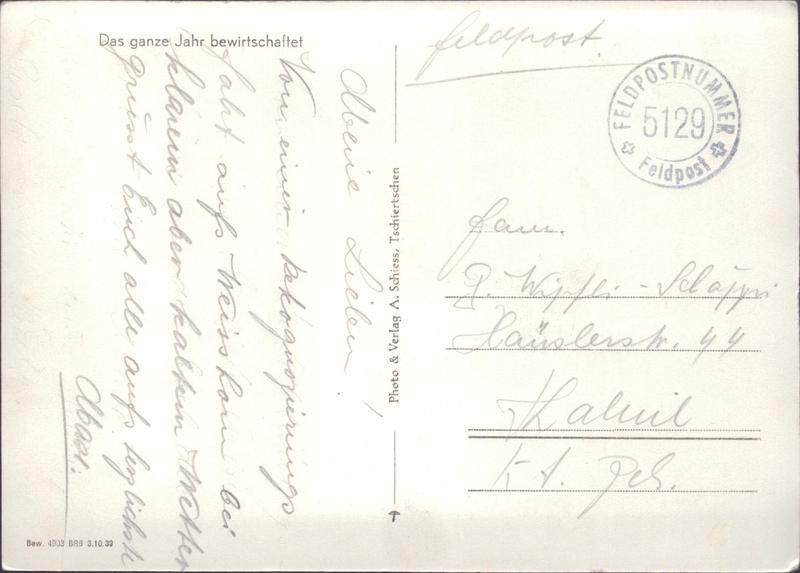 Das ganze Jahr bewirtschaftet
Meine Lieben!
Von einer Rekognoszierungs
fahrt aufs Weisshorn bei
klarem aber kaltem Wetter
grüsst Euch alle aufs herzlichste
Photo & Verlag A. Schiess, Tschiertschen
Feldpost.
FELDPOSTNUMMER
5129
Feldpost
Fam.
R. Wipfli-Schäppi
Häuslerstr. 44
Kt. Zch.
Bew. 4903 BRB 3.10.39